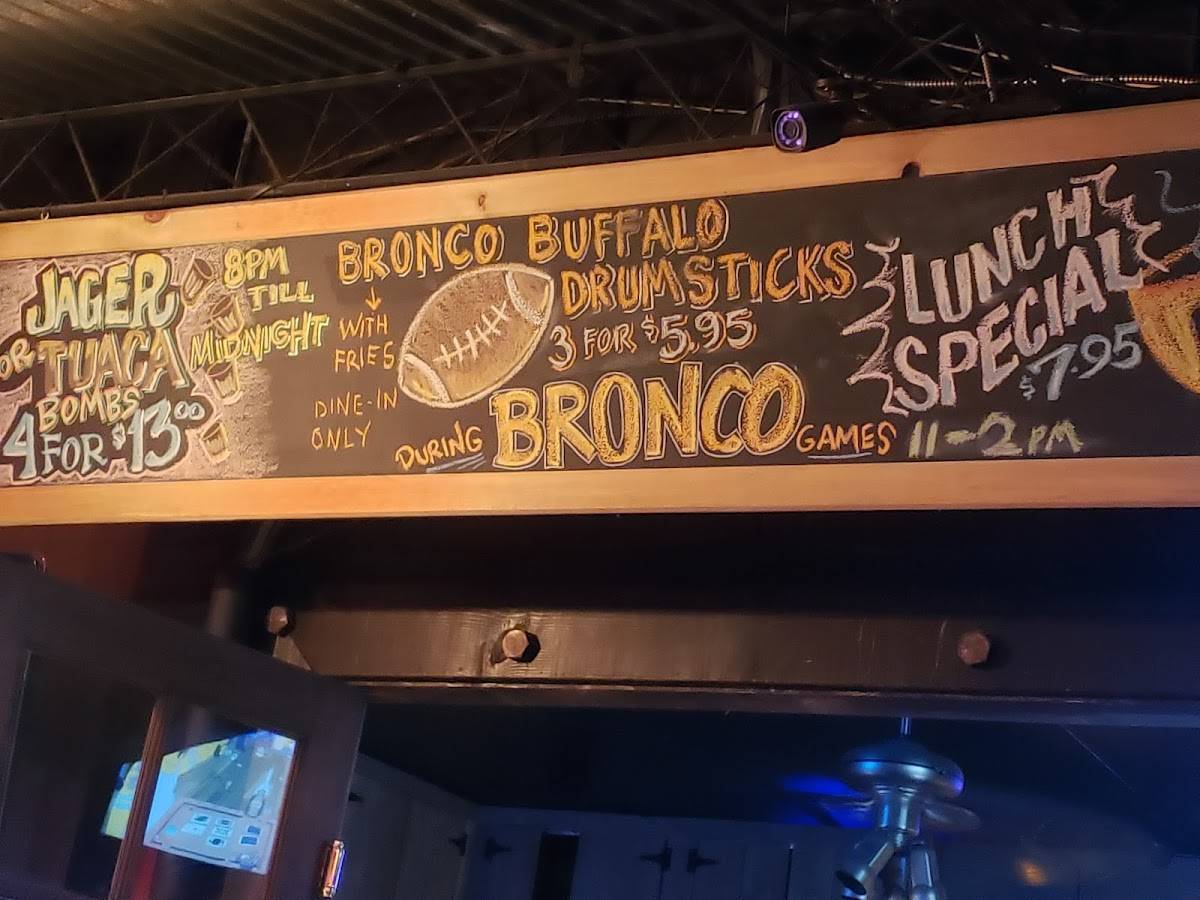 JAGER
OR TUACA
BOMBS
4 FOR $13.00
8PM
TILL
MIDNIGHT
BRONCO BUFFALO
DRUMSTICKS
3 FOR $5.95
WITH
FRIES
DINE-IN
ONLY
DURING BRONCO GAMES
LUNCH
SPECIAL
$7.95
11-2 PM